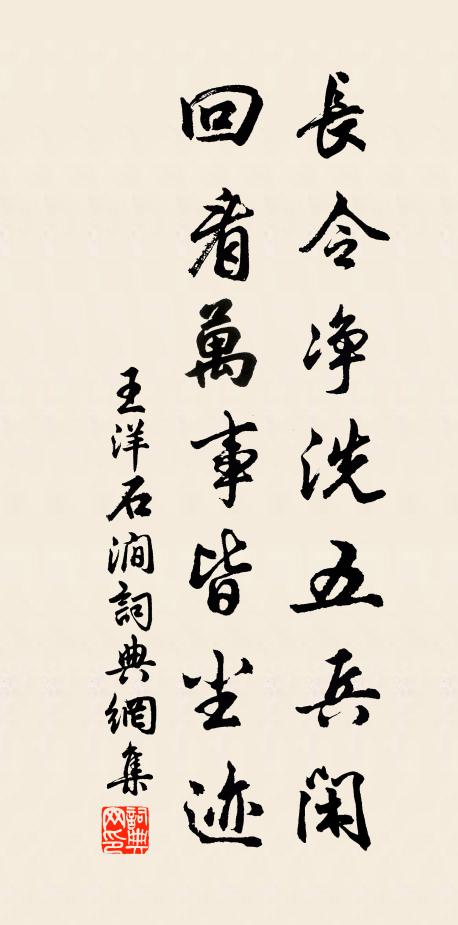 長令净洗五兵閑
回看萬事皆尘迹
王洋石澗詞典網集
詞典网印